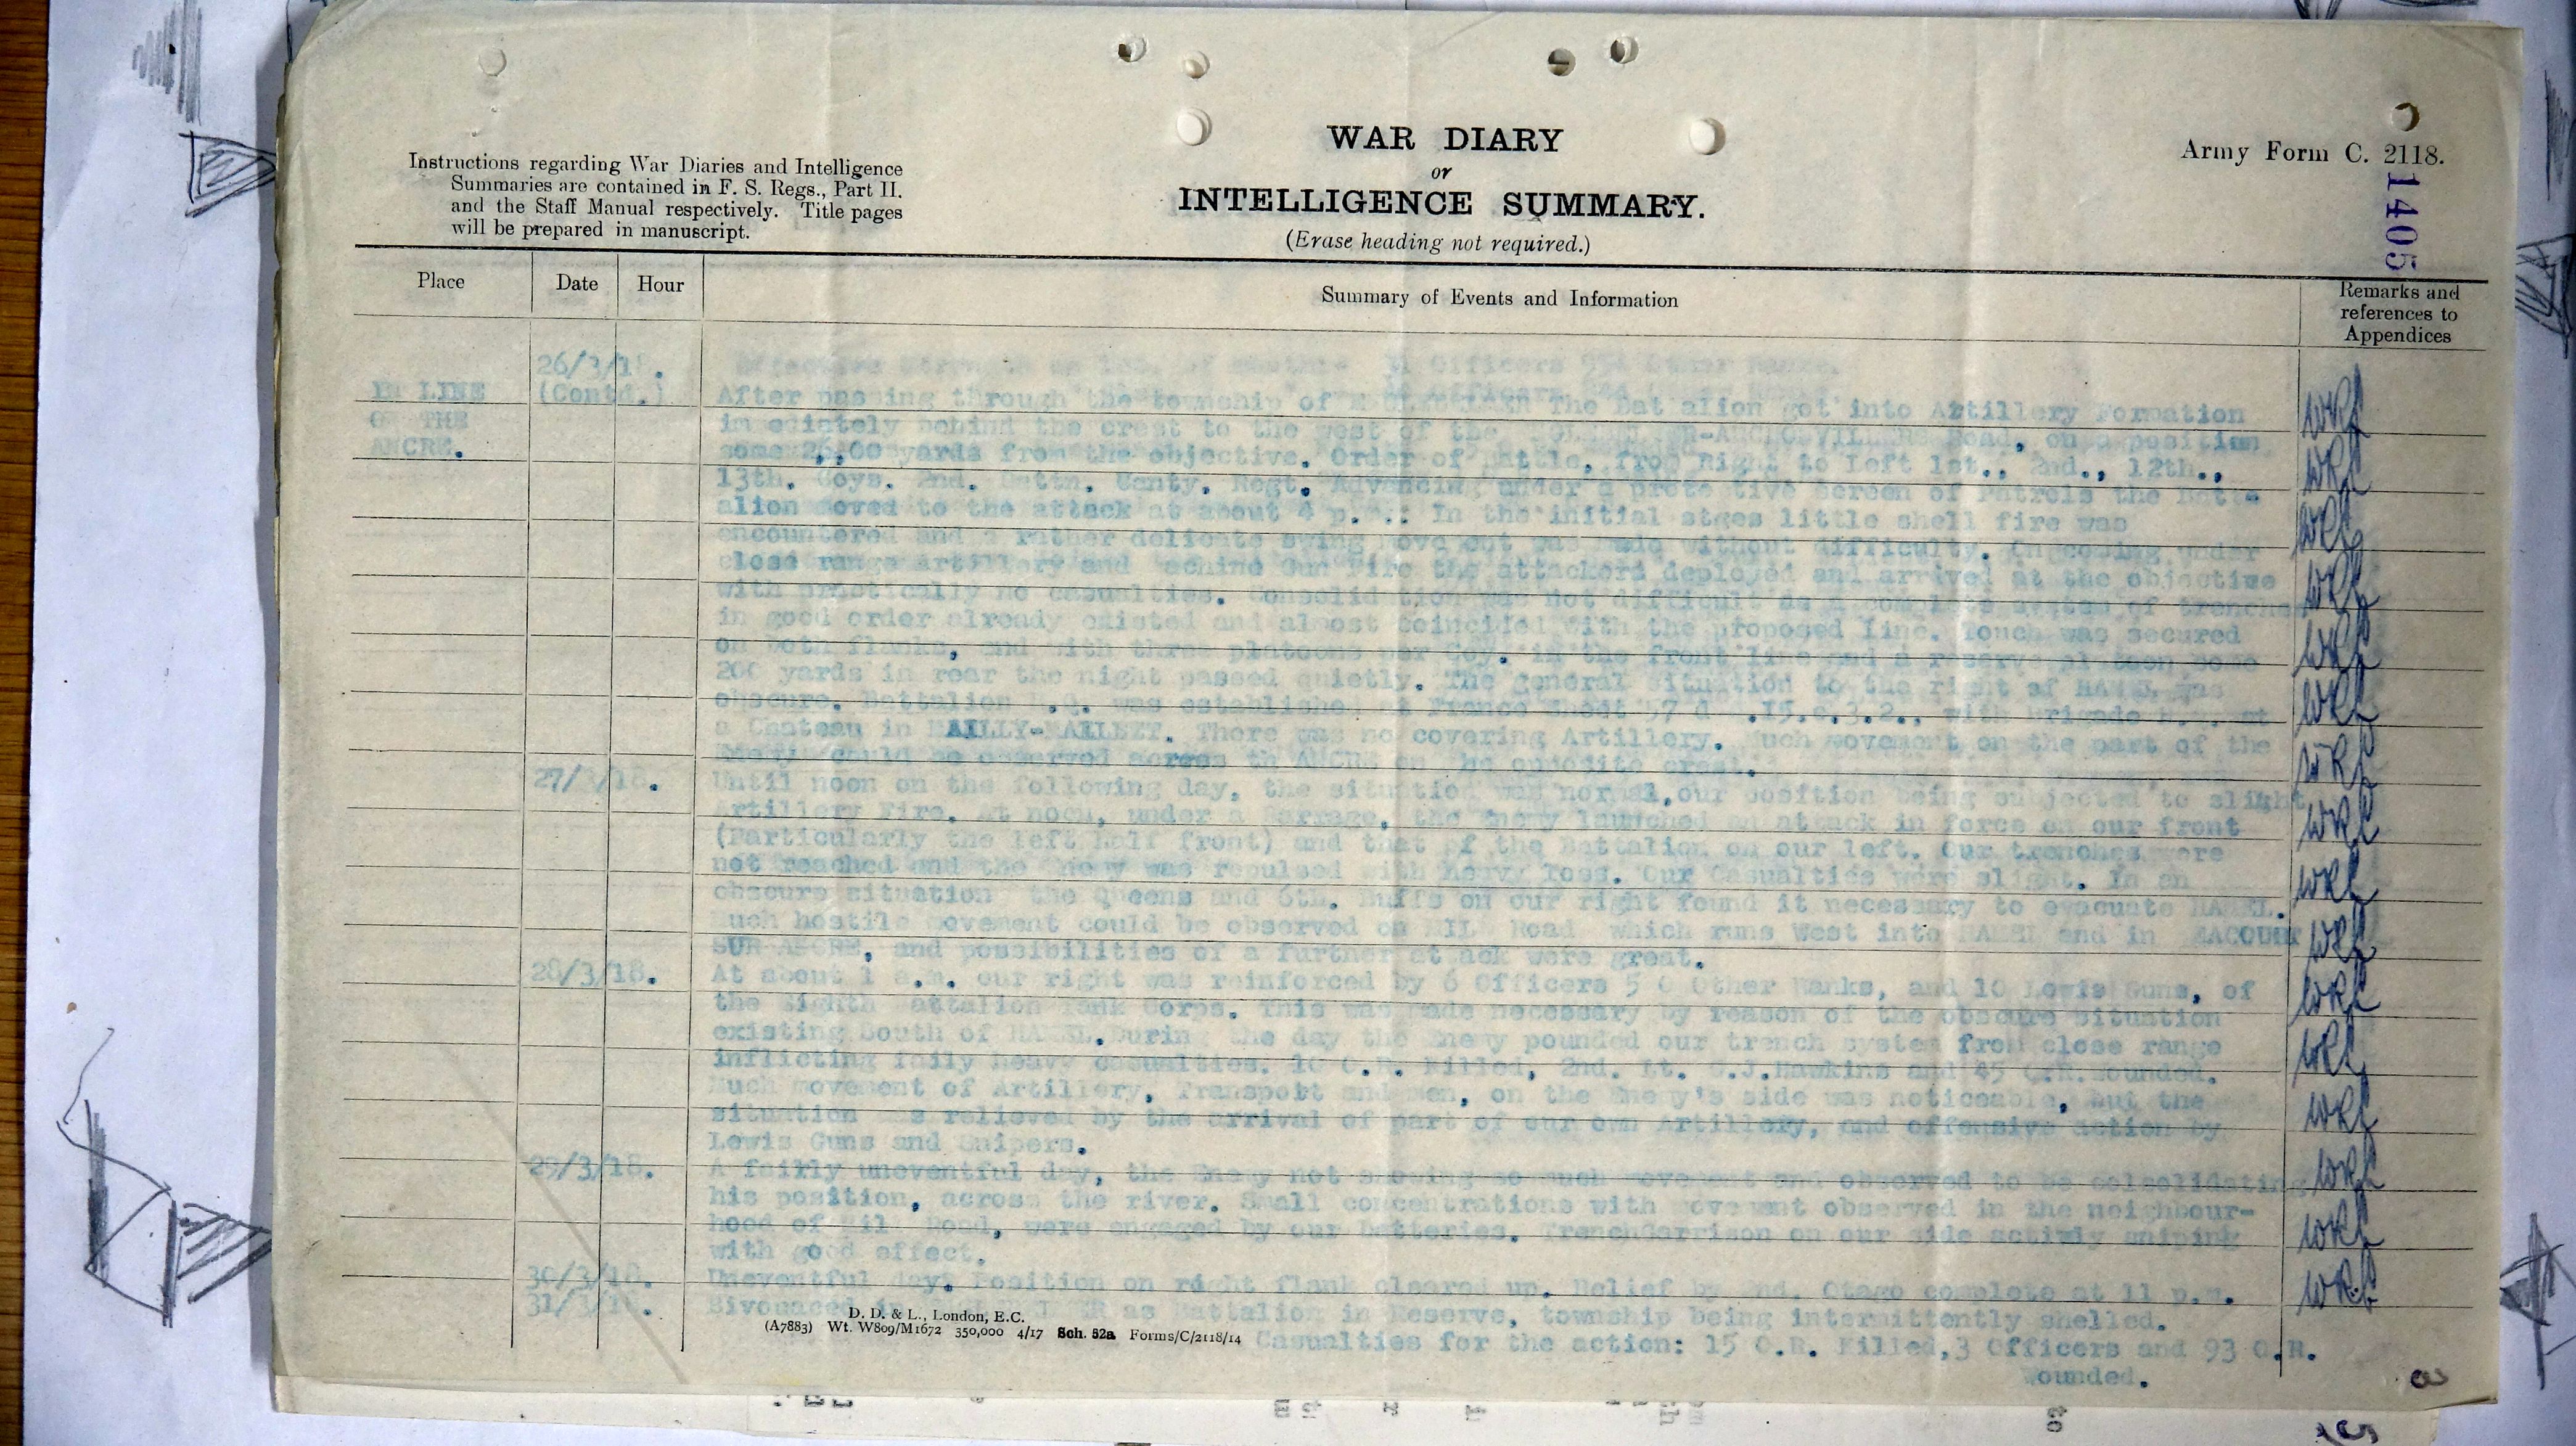 WAR DIARY
or
INTELLIGENCE SUMMARY.
(Erase heading not required.)
Army Form C. 2118.
1405
Instructions regarding War Diaries and Intelligence
Summaries are contained in F. S. Regs., Part II.
and the Staff Manual respectively. Title pages
will be prepared in manuscript.
Place Date Hour Summary of Events and Information Remarks and
references to
Appendices
26/3/18.
(Contd.)
IN LINE
OF THE
ANCRE.
Effective Strength as 1st. of Month:- Officers Other Ranks.
After passing through the township of The Battalion got into Artillery Formation
immediately behind the crest to the west of the Road, on a position
some yards from the objective. Order of Battle, from Right to Left 1st., 2nd., 12th.,
13th. Coys. 2nd. Battn. Canty. Regt. Advancing under a protective screen of Patrols the Batt-
alion moved to the attack at about 4 p.m.: In the initial stges little shell fire was
encountered and a rather delicate swing movement was made without difficulty. On coming under
close range artillery and Machine Gun Fire the attackers deployed and arrived at the objective
with practically no casualties. Consolidation was not difficult as a complete system of trenches
in good order already existed and almost coincided with the proposed line. Touch was secured
on both flanks, and with three platoons per Coy. in the front line and a reserve platoon some
200 yards in rear the night passed quietly. The general situation to the right of HAMEL was
obscure. Battalion H.Q. was established at France Sheet 57 d .15.c.3.2., with Brigade H.Q. at
a Chateau in MAILLY-MAILLET. There was no covering Artillery. Much movement on the part of the
Enemy could be observed across th ANCRE on the opposite crest.
27/3/18. Until noon on the following day, the situation was normal,our position being subjected to slight
Artillery Fire. At noon, under a Barrage, the Enemy launched an attack in force on our front
(Particularly the left half front) and that of the Battalion on our left. Our trenches were
not reached and the Enemy was repulsed with heavy loss. Our Casualties were slight. In an
obscure situation the Queens and 6th. Buffs on our right found it necessary to evacuate HAMEL.
Much hostile movement could be observed on MILL Road which runs West into HAMEL and in
SUR-ANCRE, and possibilities of a further attack were great.
28/3/18. At about 1 a.m. our right was reinforced by 6 Officers Other Ranks, and 10 Lewis Guns, of
the Eighth Battalion Tank Corps. This was made necessary by reason of the obscure situation
existing South of HAMEL.During the day the Enemy pounded our trench system from close range
inflicting faily heavy casualties. 10 O.R. Killed, 2nd. Lt. J.Hawkins and 45 O.R.Wounded.
Much movement of Artillery, Transport and men, on the Enemy's side was noticeable, but the
situation was relieved by the arrival of part of our own Artillery, and offensive action by
Lewis Guns and Snipers.
29/3/18. A fairly uneventful day, the Enemy not showing so much movement and observed to be consolidating
his position, across the river. Small concentrations with movement observed in the neighbour-
hood of Mill Road, were engaged by our batteries. TrenchGarrison on our side activly sniping
with good effect.
30/3/18. Uneventful day. Position on right flank cleared up. Relief by 2nd. Otago complete at 11 p.m.
31/3/18. Bivouaced in as Battalion in Reserve, township being intermittently shelled.
Casualties for the action: 15 O.R. Killed,3 Officers and 93 O.R.
Wounded.
D. D. & L., London, E.C.
(A7883) Wt. W809/M1672 350,000 4/17 Sch. 52a Forms/C/2118/14